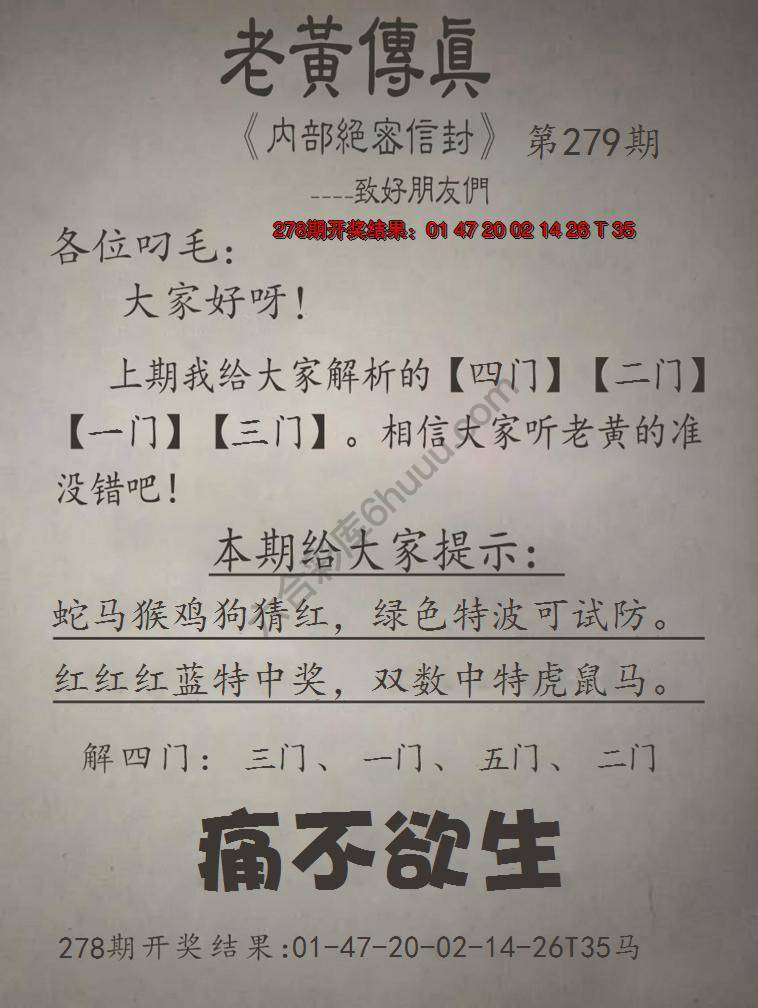 老黃傳眞
《内部絕密信封》 第279期
----致好朋友們
278期开奖结果：01 47 20 02 14 26 T 35
各位叼毛：
大家好呀！
上期我给大家解析的【四门】【二门】
【一门】【三门】。相信大家听老黄的准
没错吧！
本期给大家提示：
蛇马猴鸡狗猜红，绿色特波可试防。
红红红蓝特中奖，双数中特虎鼠马。
解四门： 三门、一门、五门、二门
痛不欲生
278期开奖结果:01-47-20-02-14-26T35马
六合彩库6huuu.com